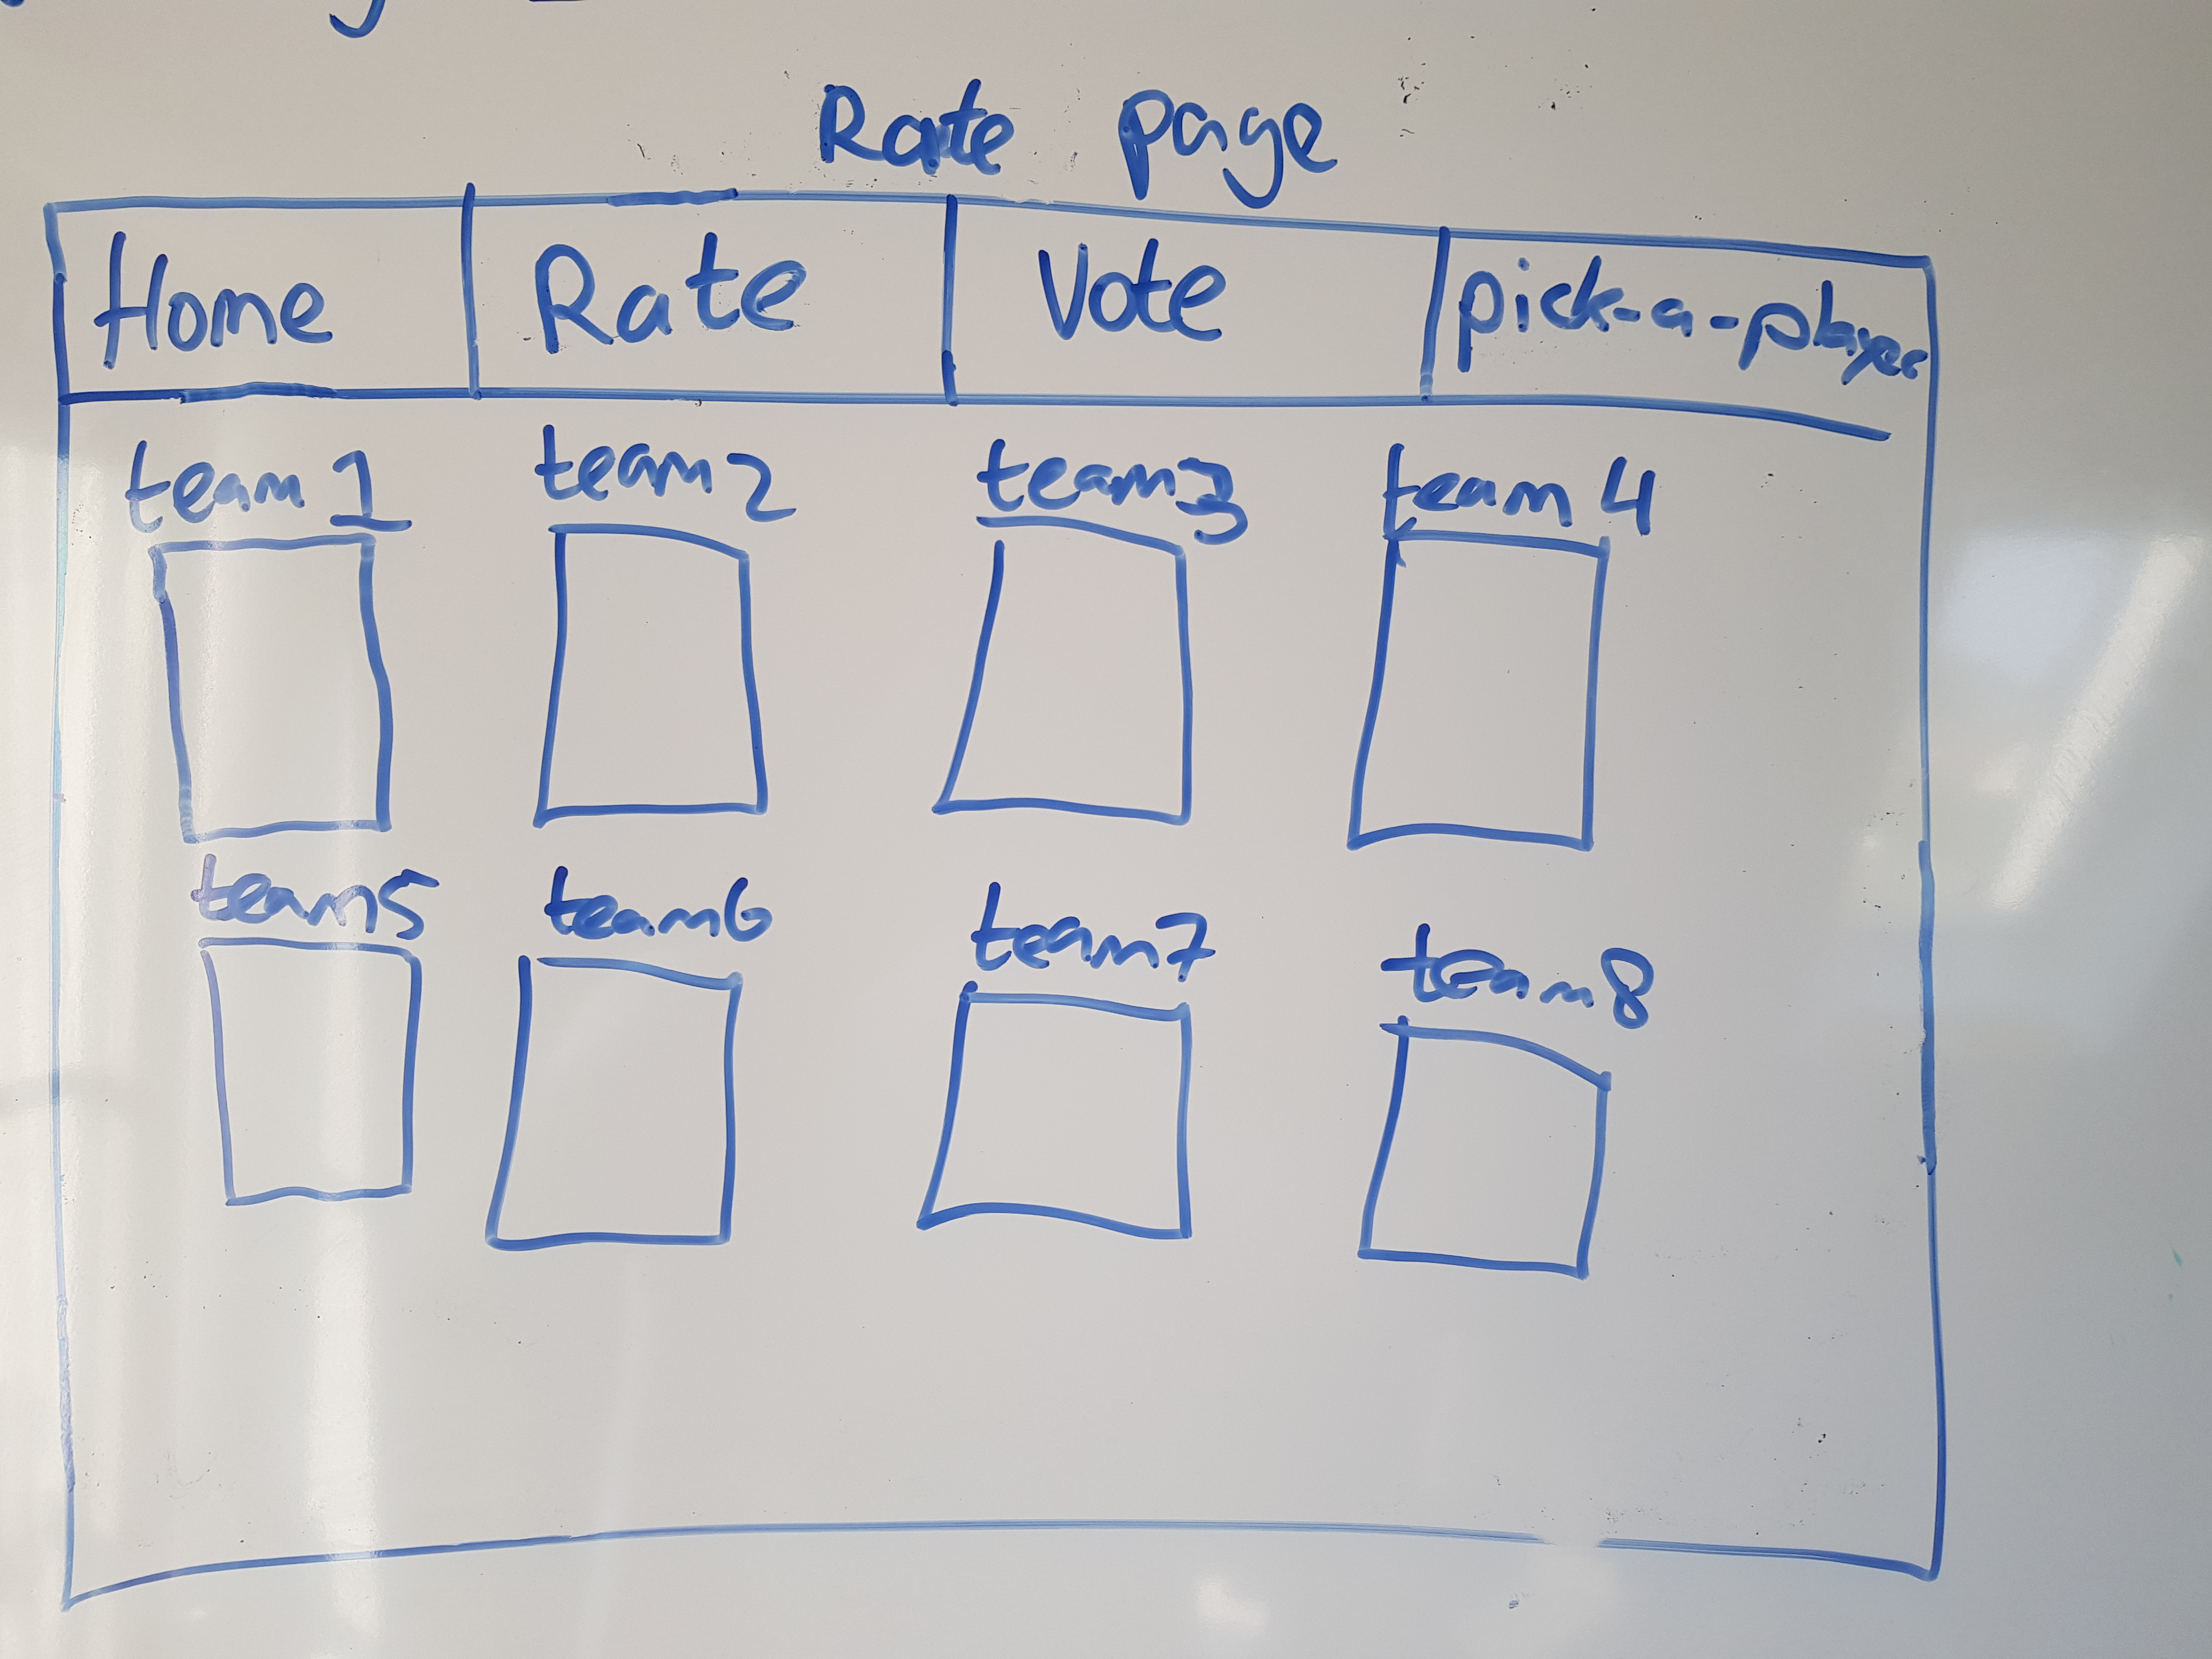 Rate page
Home Rate Vote pick-a-player
team 1 team 2 team 3 team 4
team5 team6 team7 team8